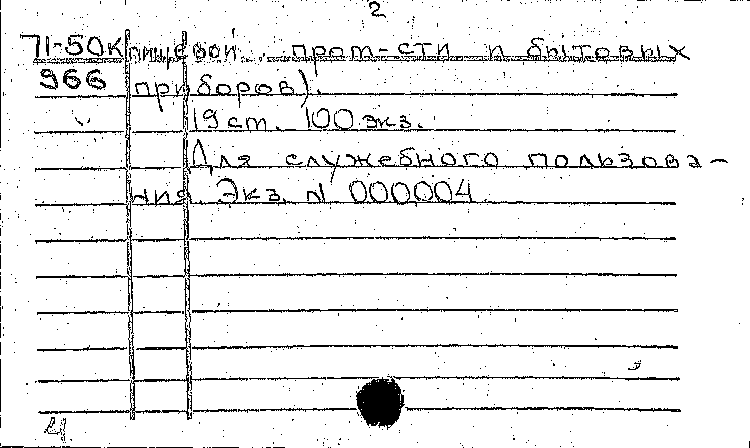 2
71-50К пищевой пром-сти и бытовых
966 приборов).
19 ст. 100 экз.
Для служебного пользова-
ния. Экз. N 000004